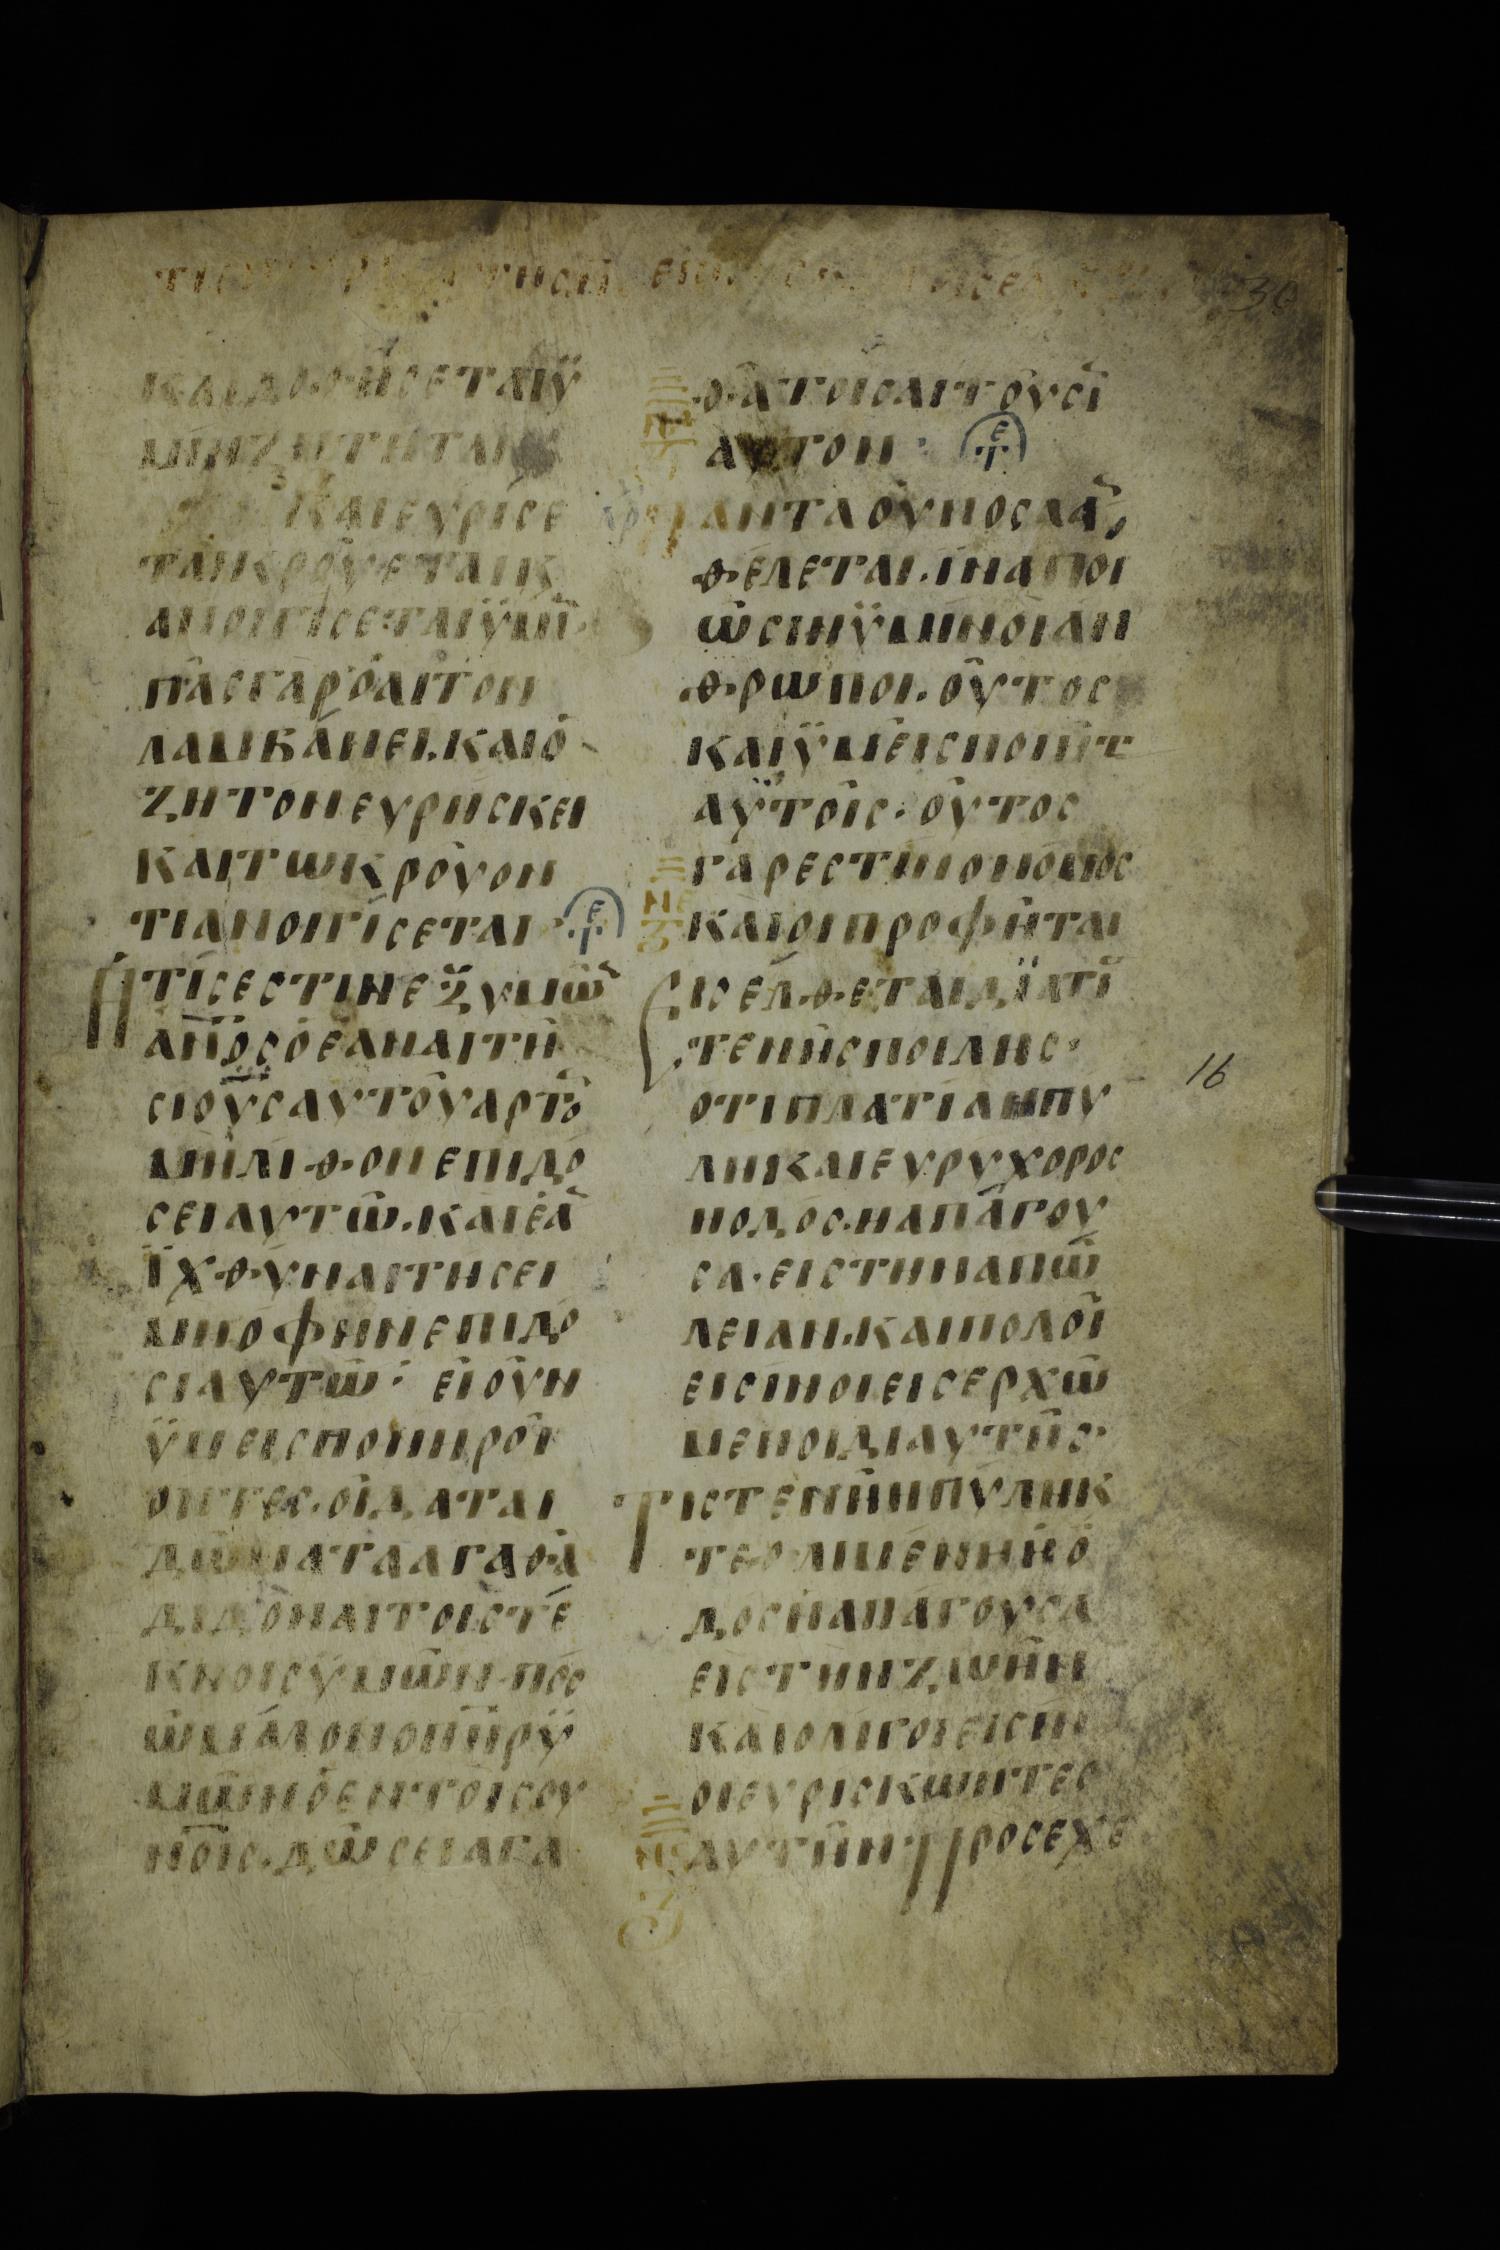 30
ΚΑΙΔΟΘΗCΕΤΑΙΫ
ΜΗΝΖΗΤΗΤΑΙΚ
ΚΑΙΕΥΡΙCΕ
ΤΑΙΚΡΟΥΕΤΑΙΚ
ΑΝΟΙΓΙCΕΤΑΙΫΜΗ
ΠΑCΓΑΡΟΑΙΤΟΝ
ΛΑΜΒΑΝΕΙ.ΚΑΙΟ
ΖΗΤΟΝΕΥΡΗCΚΕΙ
ΚΑΙΤΩΚΡΟΥΟΝ
ΤΙΑΝΟΙΓΙCΕΤΑΙ· ΤΕ
ΗΤΙCΕCΤΙΝΕΞΥΜΩ
ΑΝΟCΟΕΑΝΑΙΤΗ
CΙΟΥCΑΥΤΟΥΑΡΤΟ
ΜΗΛΙΘΟΝΕΠΙΔΟ
CΕΙΑΥΤΩ.ΚΑΙΕΑ
ΪΧΘΥΝΑΙΤΗCΕΙ
ΜΗΟΦΗΝΕΠΙΔΟ
CΙΑΥΤΩ· ΕΙΟΥΝ
ΫΜΕΙCΠΟΝΗΡΟΙ
ΟΝΤΕC.ΟΙΔΑΤΑΙ
ΔΩΜΑΤΑΑΓΑΘΑ
ΔΙΔΟΝΑΙΤΟΙCΤΕ
ΚΝΟΙCΫΜΩΝ·ΠΟC
ΩΜΑΛΟΝΟΠΗΡΫ
ΜΩΝΟΕΝΤΟΙCΟΥ
ΝΟΙC.ΔΩCΕΙΑΓΑ
ΘΑΤΟΙCΑΙΤΟΥCΙ
ΑΥΤΟΝ· ΤΕ
ΠΑΝΤΑΟΥΝΟCΑΑ
ΘΕΛΕΤΑΙ.ΙΝΑΠΟΙ
ΩCΙΝΫΜΗΝΟΙΑΝ
ΘΡΩΠΟΙ.ΟΥΤΟC
ΚΑΙΫΜΕΙCΠΟΙΗΤ
ΑΥΤΟΙC·ΟΥΤΟC
ΓΑΡΕCΤΗΝΟΝΟΜΟC
ΚΑΙΟΙΠΡΟΦΗΤΑΙ
ΕΙCΕΛΘΕΤΑΙΔΪΑΤΙ
CΤΕΝΗCΠΟΙΛΗC·
ΟΤΙΠΛΑΤΙΑΗΠΥ
ΛΗΚΑΙΕΥΡΥΧΟΡΟC
ΗΟΔΟC.ΗΑΠΑΓΟΥ
CΑ·ΕΙCΤΗΝΑΠΩ
ΛΕΙΑΝ.ΚΑΙΠΟΛΟΙ
ΕΙCΙΝΟΙΕΙCΕΡΧΩ
ΜΕΝΟΙΔΙΑΥΤΗC·
ΤΙCΤΕΝΗΗΠΥΛΗΚ
ΤΕΘΛΙΜΕΝΗΗΟ
ΔΟCΗΑΠΑΓΟΥCΑ
ΕΙCΤΗΝΖΩΗΝ
ΚΑΙΟΛΙΓΟΙΕΙCΙΝ
ΟΙΕΥΡΙCΚΩΝΤΕC
ΑΥΤΗΝ·ΠΡΟCΕΧΕ
16